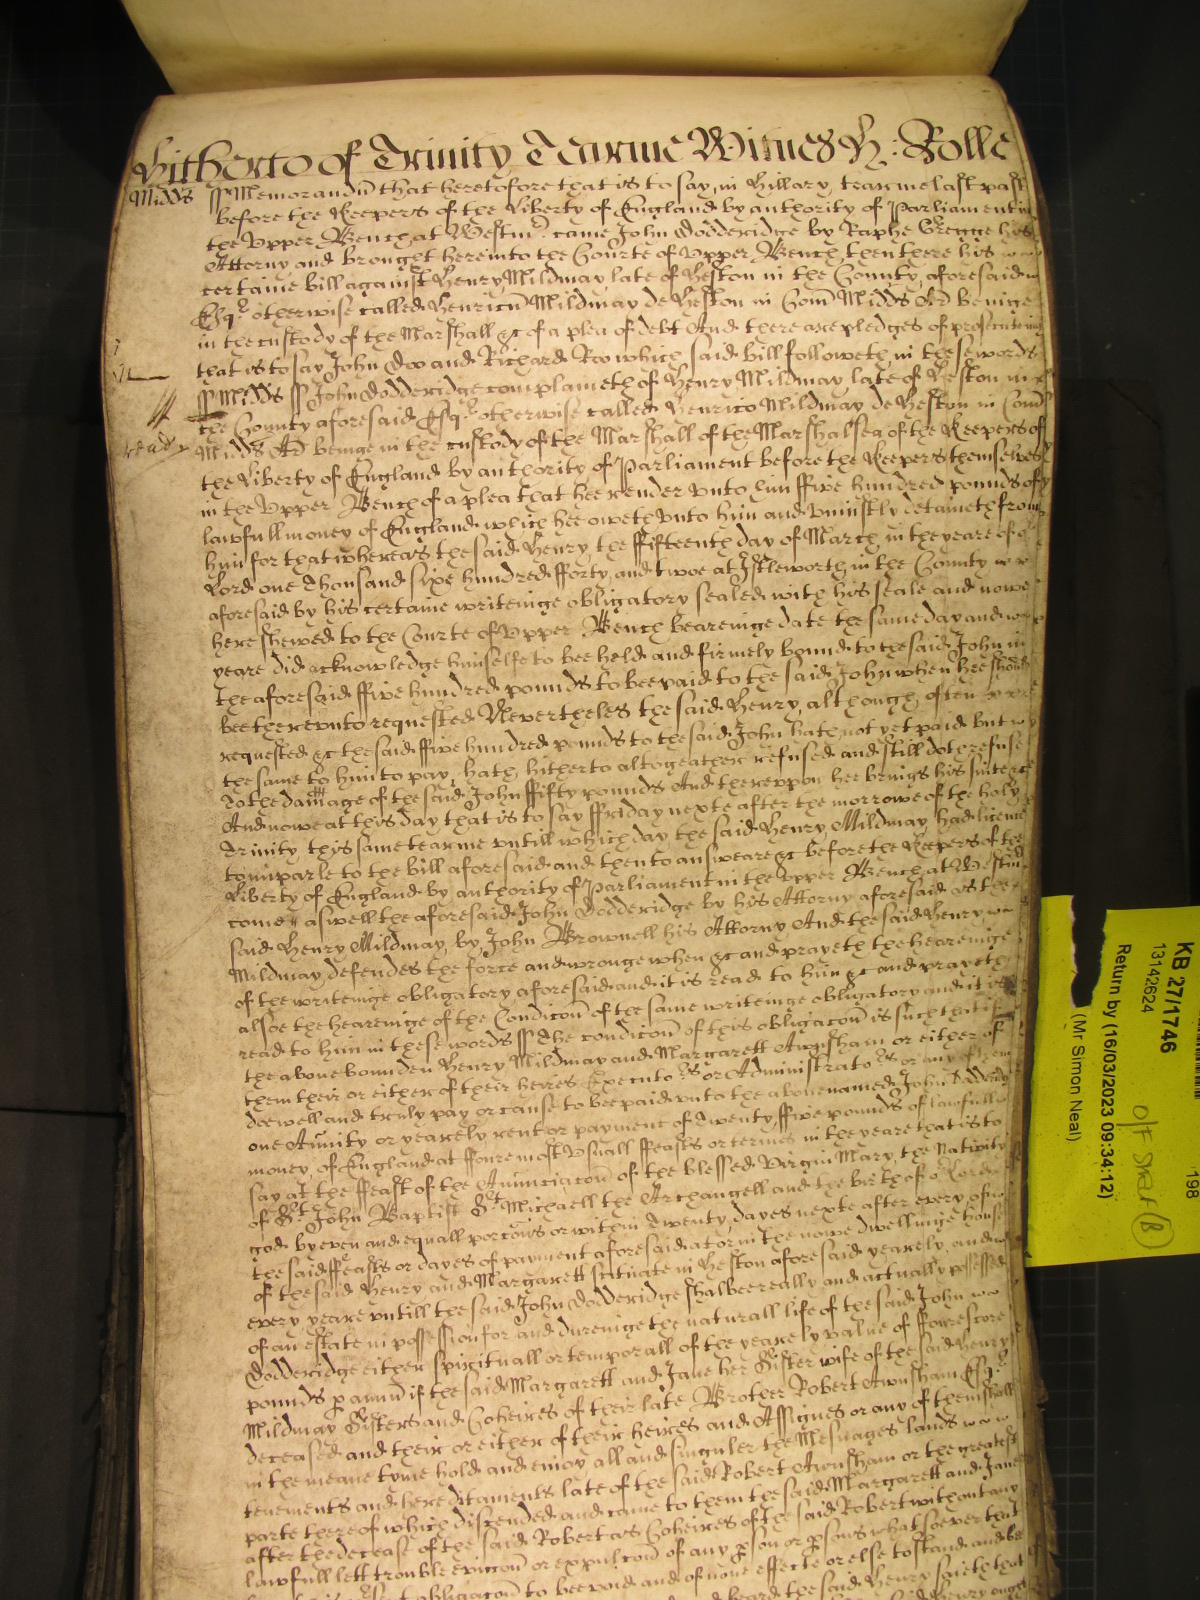 Hitherto of Trinity Tearme Witnes H: Rolle
Midds ss Memorandũ that heretofore that is to say in Hillary tearme last past
before the Keepers of the Liberty of England by authority of Parliament in
the Upper Bench at Westm̃ came John Dodderidge by Raphe Gregge his
Attorny and brought here into the Courte of Upper Bench then there his
certaine bill against Henry Mildmay late of Heston in the County aforesaid
Esqr otherwise called Henricũ Mildmay de Heston in Com̃ Midds Ar̃ beinge
in the custody of the Marshall &c of a plea of debt And there are pledges of prosecuteing
that is to say John Doo and Richard Roo which said bill followeth in these words
ss Midds ss John Dodderidge complaineth of Henry Mildmay late of Heston in
the County aforesaid Esqr otherwise called Henrico Mildmay de Heston in Com̃
ready
Midds Ar̃ beinge in the custody of the Marshall of the Marshalsea of the Keepers of
the Liberty of England by authority of Parliament before the Keepers themselves
in the Upper Bench of a plea that hee render unto him ffive hundred pounds of
lawfull money of England which hee oweth unto him and uniustly detaineth from
him for that whereas the said Henry the ffifteenth day of March in the yeare of
Lord one Thousand sixe hundred fforty and twoe at Istleworth in the County
aforesaid by his certaine writeinge obligatory sealed with his seale and nowe
here shewed to the Courte of Upper Bench beareinge date the same day and
yeare did acknowledge himselfe to bee held and firmely bound to the said John in
the aforesaid ffive hundred pounds to bee paid to the said John when hee should
bee thereunto requested Nevertheles the said Henry although often
requested &c the said ffive hundred pounds to the said John hath not yet paid but
the same to him to pay hath hitherto altogeather refused and still doth refuse
To the damage of the said John ffifty pounds And thereuppon hee brings his suite &c
And nowe at this day that is to say ffriday nexte after the morrowe of the holy
Trinity this same tearme untill which day the said Henry Mildmay had licence
to imparle to the bill aforesaid and then to answeare &c before the Keepers of the
Liberty of England by authority of Parliament in the Upper Bench at Westm̃
come aswell the aforesaid John Dodderidge by his Attorny aforesaid as the
said Henry Mildmay by John Brownell his Attorny And the said Henry
Mildmay defendes the force and wronge when &c and prayeth the heareinge
of the writeinge obligatory aforesaid and it is read to him &c and prayeth
alsoe the heareinge of the Condicoñ of the same writeinge obligatory and it is
read to him in these words ss The condicoñ of this obligacoñ is such that if
the above bounden Henry Mildmay and Margarett Awnsham or either of
them their or either of their heires Executors or Administrators or any of them
doe well and truly pay or cause to bee paid unto the abovenamed John Dodderidge
one Anuity or yearely rent or payment of Twenty ffive pounds of lawfull
money of England at ffoure most usuall ffeasts or termes in the yeare that is to
say at the ffeast of the Anunciacoñ of the blessed Virgin Mary, the Nativity
of St. John Baptist St. Michaell the Archangell and the birth of or Lord
god by even and equall porcoñs or within Twenty dayes nexte after every of
the said ffeasts or dayes of payment aforesaid at or in the nowe dwellinge house
of the said Henry and Margarett scituate in Heston aforesaid yearely and
every yeare untill the said John Dodderidge shalbee really and actually possessed
of an estate in possession for and dureinge the naturall life of the said John
Dodderidge either spirituall or temporall of the yearely value of ffourescore
pounds p annũ if the said Margarett and Jane her Sister wife of the said Henry
Mildmay Sisters and Coheires of their late Brother Robert Awnsham Esqr
deceased and their or either of their heires and Assignes or any of them shall
in the meane tyme hold and enioy all and singuler the Mesuages lands
tenements and hereditaments late of the said Robert Awnsham or the greatest
parte thereof which discended and came to them the said Margarett and Jane
after the decease of the said Robert as Coheires of the said Robert without any
lawfull lett trouble eviccoñ or expulcoñ of any pson or psons whatsoever that
obligacoñ to bee void and of none effecte or else to stand and bee
heard the said Henry saieth that
KB 27/1746
13142624
Return by (16/03/2023 09:34:12)
(Mr Simon Neal)
198